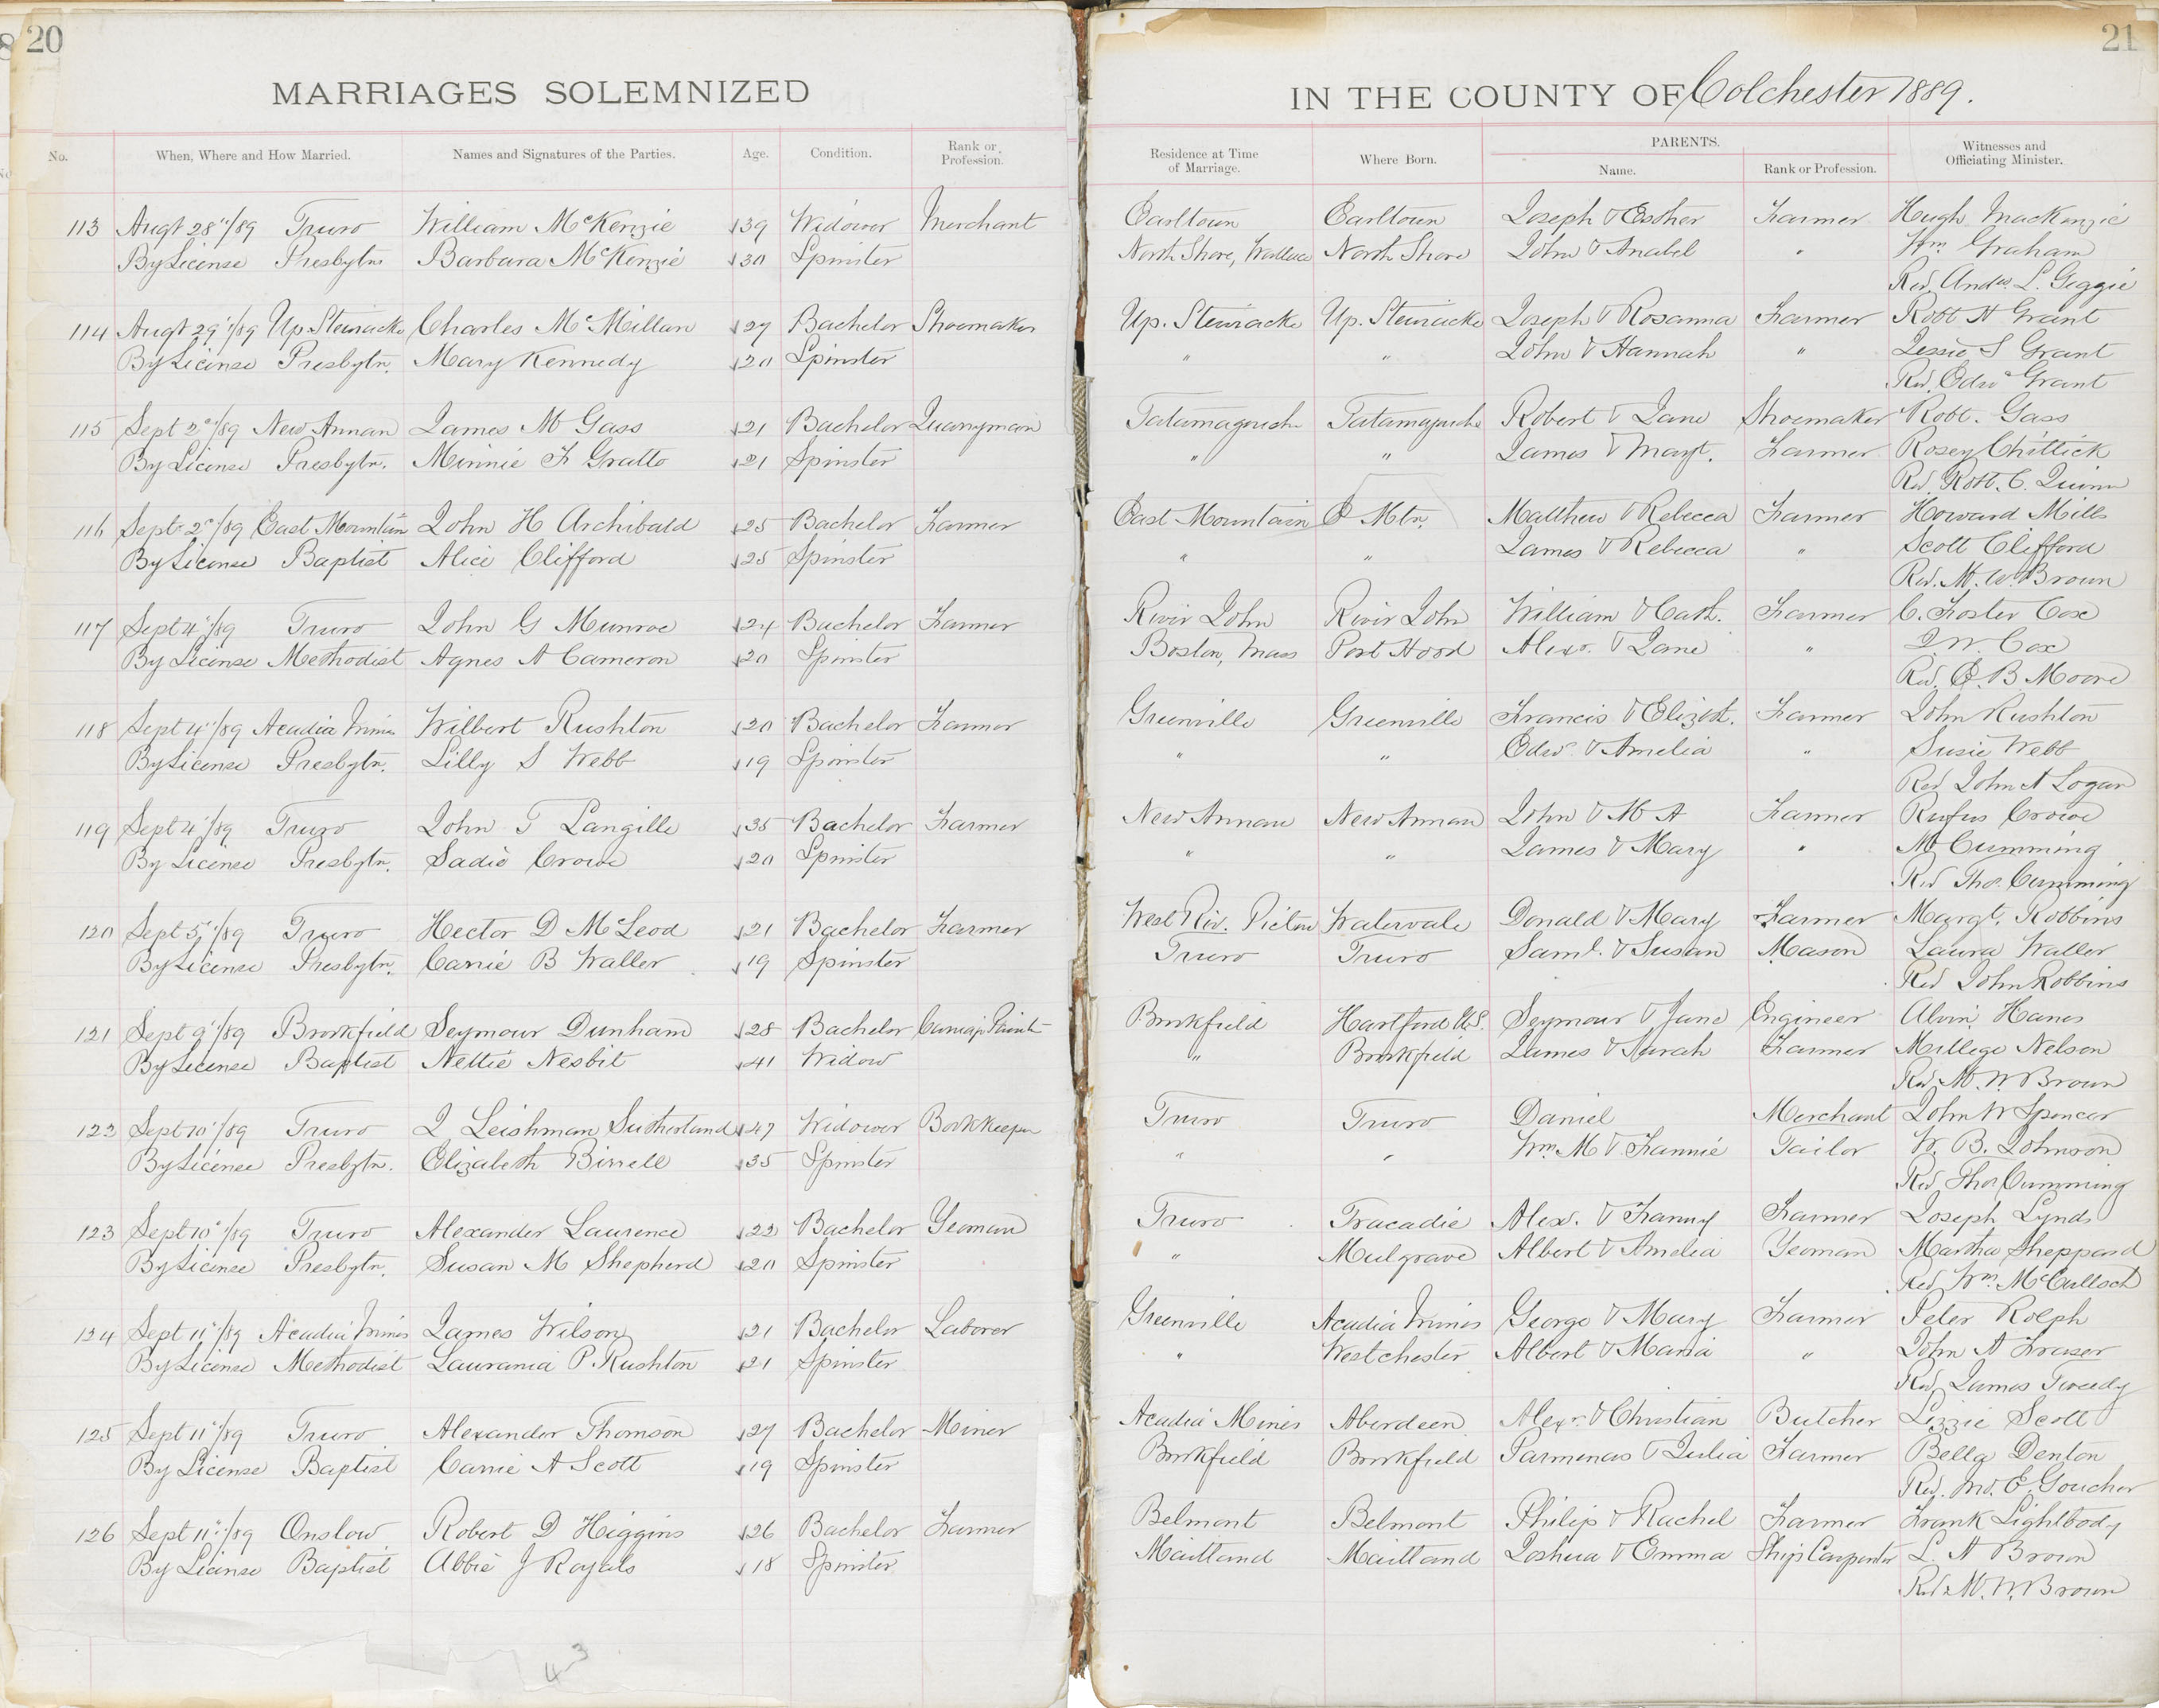 20
MARRIAGES SOLEMNIZED
No. When, Where and How Married. Names and Signatures of the Parties. Age. Condition. Rank or Profession.
113 Augt 28"/89 Truro William McKenzie 39 Widower Merchant
By License Presbytn Barbara McKenzie 30 Spinster
114 Augt 29"/89 Up. Stewiacke Charles McMillan 27 Bachelor Shoemaker
By License Presbytn. Mary Kennedy 20 Spinster
115 Sept 2"/89 New Annan James M Gass 21 Bachelor Quarryman
By License Presbytn. Minnie F Gratto 21 Spinster
116 Sept 2"/89 East Mountain John H Archibald 25 Bachelor Farmer
By License Baptist Alice Clifford 25 Spinster
117 Sept 4"/89 Truro John G Munroe 24 Bachelor Farmer
By License Methodist Agnes A Cameron 20 Spinster
118 Sept 4"/89 Acadia Mines Wilbert Rushton 20 Bachelor Farmer
By License Presbytn. Lilly S Webb 19 Spinster
119 Sept 4"/89 Truro John T Langille 35 Bachelor Farmer
By License Presbytn. Sadie Crowe 20 Spinster
120 Sept 5"/89 Truro Hector D McLeod 21 Bachelor Farmer
By License Presbytn. Carrie B Waller 19 Spinster
121 Sept 9"/89 Brookfield Seymour Dunham 28 Bachelor Carriage Painter
By License Baptist Nettie Nesbit 41 Widow
122 Sept 10"/89 Truro J Leishman Sutherland 47 Widower Bookkeeper
By License Presbytn. Elizabeth Birrell 35 Spinster
123 Sept 10"/89 Truro Alexander Laurence 22 Bachelor Yeoman
By License Presbytn. Susan M Shepherd 20 Spinster
124 Sept 11"/89 Acadia Mines James Wilson 21 Bachelor Laborer
By License Methodist Laurania P. Rushton 21 Spinster
125 Sept 11"/89 Truro Alexander Thomson 27 Bachelor Miner
By License Baptist Carrie A Scott 19 Spinster
126 Sept 11"/89 Onslow Robert D Higgins 26 Bachelor Farmer
By License Baptist Abbie J Royals 18 Spinster
43
21
IN THE COUNTY OF Colchester 1889.
Residence at Time of Marriage. Where Born. PARENTS. Name. Rank or Profession. Witnesses and Officiating Minister.
Earltown Earltown Joseph & Esther Farmer Hugh MacKenzie
North Shore, Wallace North Shore John & Anabel " Wm Graham
Rev. Andw L. Geggie
Up. Stewiacke Up. Stewiacke Joseph & Rosanna Farmer Robt H Grant
" " John & Hannah " Jessie S Grant
Rev. Edwd Grant
Tatamagouche Tatamagouche Robert & Jane Shoemaker Robt. Gass
" " James & Margt. Farmer Rosey Chittick
Rev. Robt. C. Quinn
East Mountain E Mtn. Matthew & Rebecca Farmer Howard Mills
" " James & Rebecca " Scott Clifford
Rev. M. W. Brown
River John River John William & Cath. Farmer C. Foster Cox
Boston, Mass Port Hood Alexr. & Jane " J. W. Cox
Rev. E. B Moore
Greenville Greenville Francis & Elizbt. Farmer John Rushton
" " Edwd & Amelia " Susie Webb
Rev John A Logan
New Annan New Annan John & M A Farmer Rufus Crowe
" " James & Mary " M Cumming
Rev Thos. Cumming
West Riv. Pictou Watervale Donald & Mary Farmer Margt. Robbins
Truro Truro Saml. & Susan Mason Laura Waller
Rev John Robbins
Brookfield Hartford U.S. Seymour & Jane Engineer Alvin Hanes
" Brookfield James & Sarah Farmer Millege Nelson
Rev. M. W. Brown
Truro Truro Daniel Merchant John W Spencer
" " Wm. M & Fannie Tailor W. B. Johnson
Rev Thos Cumming
Truro Tracadie Alex. & Fanny Farmer Joseph Lynds
" Mulgrave Albert & Amelia Yeoman Martha Sheppard
Rev Wm. McCulloch
Greenville Acadia Mines George & Mary Farmer Peter Rolph
" Westchester Albert & Maria " John A Fraser
Rev James Tweedy
Acadia Mines Aberdeen Alexr. & Christian Butcher Lizzie Scott
Brookfield Brookfield Parmenas & Julia Farmer Bella Denton
Rev. Jno. E. Goucher
Belmont Belmont Philip & Rachel Farmer Frank Lightbody
Maitland Maitland Joshua & Emma Ship Carpenter L. A Brown
Rev. M. W. Brown